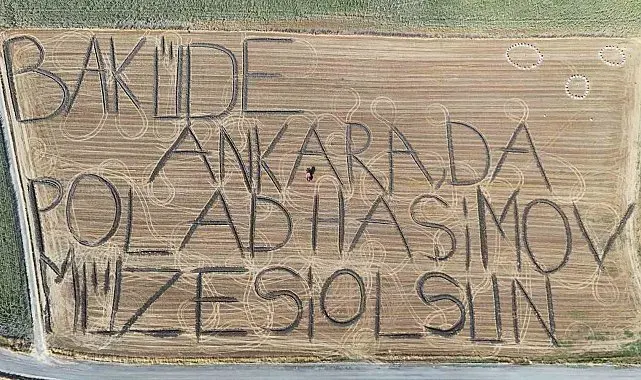 BAKÜDE
ANKARADA
POLAD HAŞİMOV
MÜZESİ OLSUN